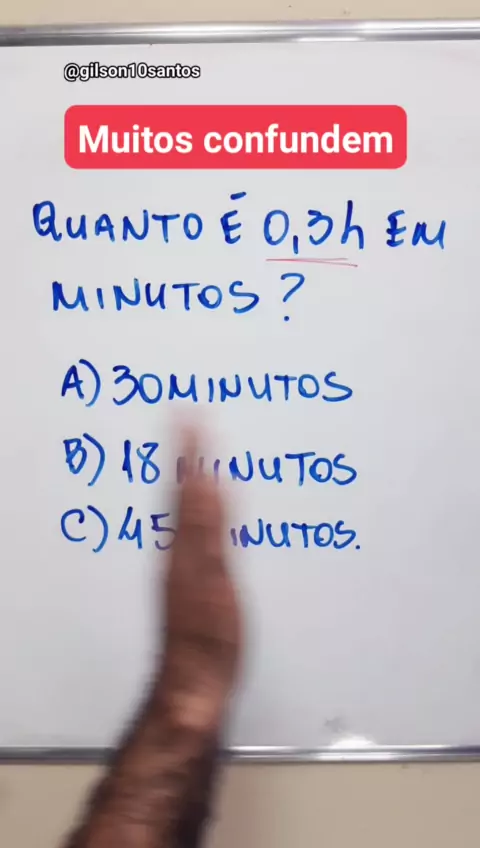 @gilson10santos
Muitos confundem
QUANTO É 0,3h EM
MINUTOS?
A) 30 MINUTOS
B) 18 MINUTOS
C) 45 MINUTOS.